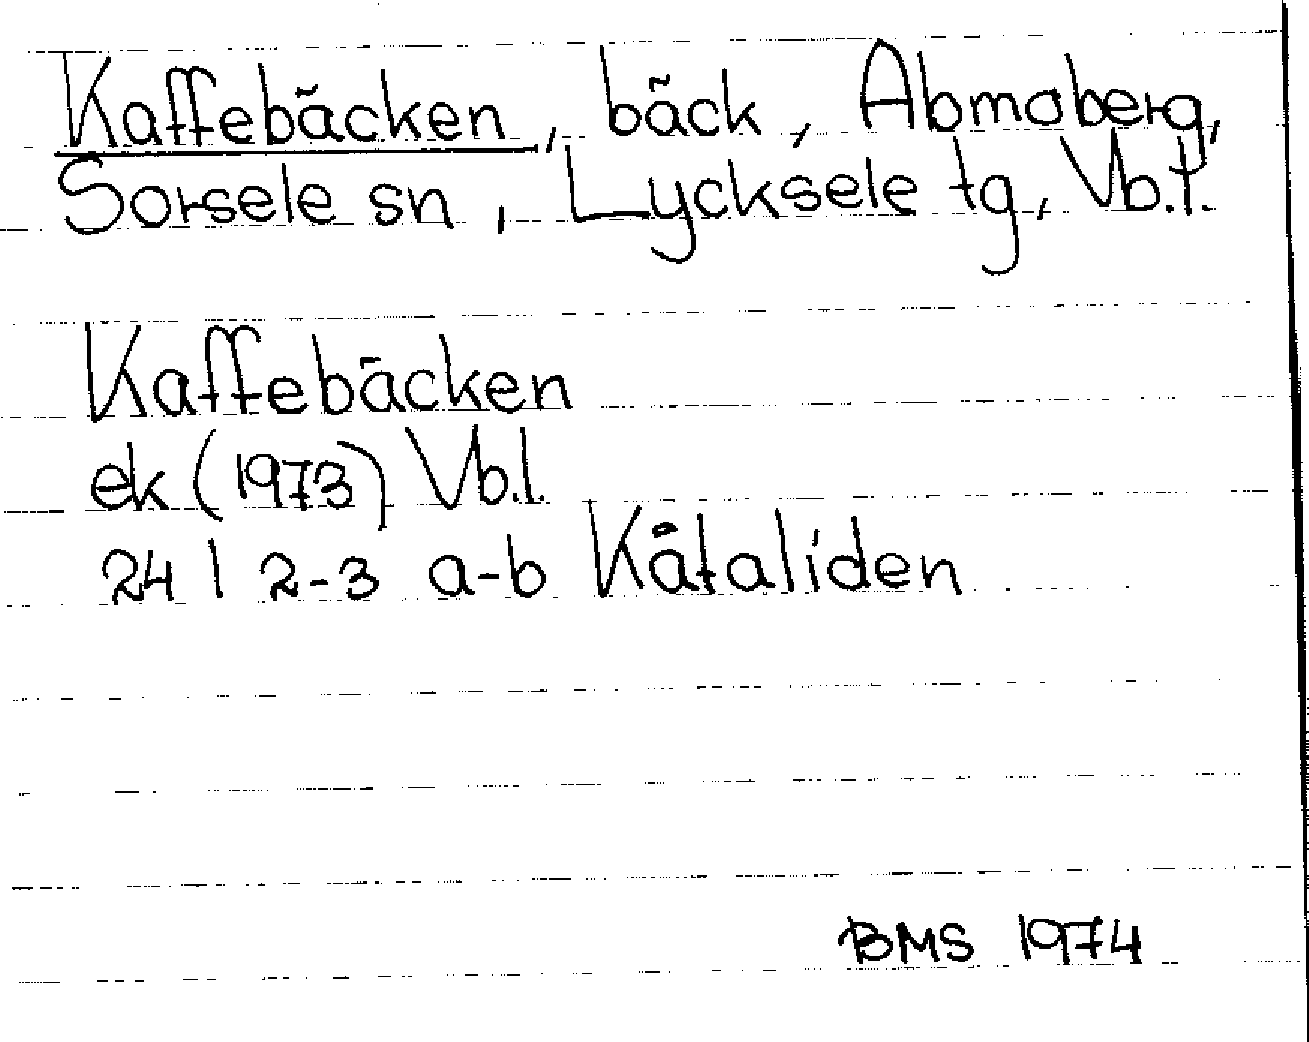 Kaffebäcken, bäck, Abmoberg,
Sorsele sn, Lycksele tg, Vb.l.
Kaffebäcken
ek (1973) Vb.l.
24 I 2-3 a-b Kåtaliden
BMS 1974